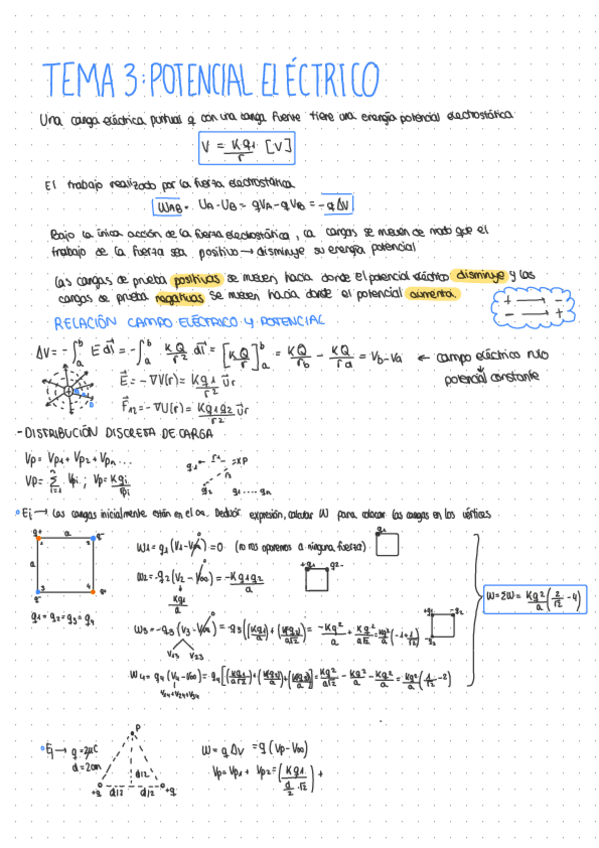 TEMA 3: POTENCIAL ELÉCTRICO
Una carga eléctrica puntual q con una carga fuente tiene una energía potencial electrostática
V = Kq1/r [V]
El trabajo realizado por la fuerza electrostática
WAB = UA - UB = qVA - qVB = -qΔV
Bajo la única acción de la fuerza electrostática, la cargas se mueven de modo que el
trabajo de la fuerza sea positivo → disminuye su energía potencial
Las cargas de prueba positivas se mueven hacia donde el potencial eléctrico disminuye y las
cargas de prueba negativas se mueven hacia donde el potencial aumenta.
+ → -
- → +
RELACIÓN CAMPO ELÉCTRICO Y POTENCIAL
ΔV = -∫ab E dl = -∫ab KQ/r² dl = [KQ/r]ab = KQ/rb - KQ/ra = Vb - Va ← campo eléctrico nulo
potencial constante
E = -∇V(r) = Kq1/r² ur
F12 = -∇U(r) = Kq1q2/r² ur
- DISTRIBUCIÓN DISCRETA DE CARGA
Vp = Vp1 + Vp2 + Vpn ...
q1 r1 P
q2 q1 .... qn
Ej → Las cargas inicialmente están en el ∞. Deducir expresión, calcular W para colocar las cargas en los vértices
q+ a q-
a
q- q+
1 2 3 4
q1 = q2 = q3 = q4
W1 = q1(V1 - V∞) = 0 (no nos oponemos a ninguna fuerza) q1
W2 = -q2(V2 - V∞) = -Kq1q2/a +q1 q2-
Kq1/a
W3 = -q3(V3 - V∞)
V13 V23
W4 = q4(V4 - V∞)
V14+V24+V34
W = ΣW = Kq²/a (2/√2 - 4)
Ej → q = 2μC
d = 2cm
P
d/2
+q d/2 d/2 +q
W = qΔV = q(Vp - V∞)
Vp = Vp1 + Vp2 = (Kq1 / (d/2 · √2)) +